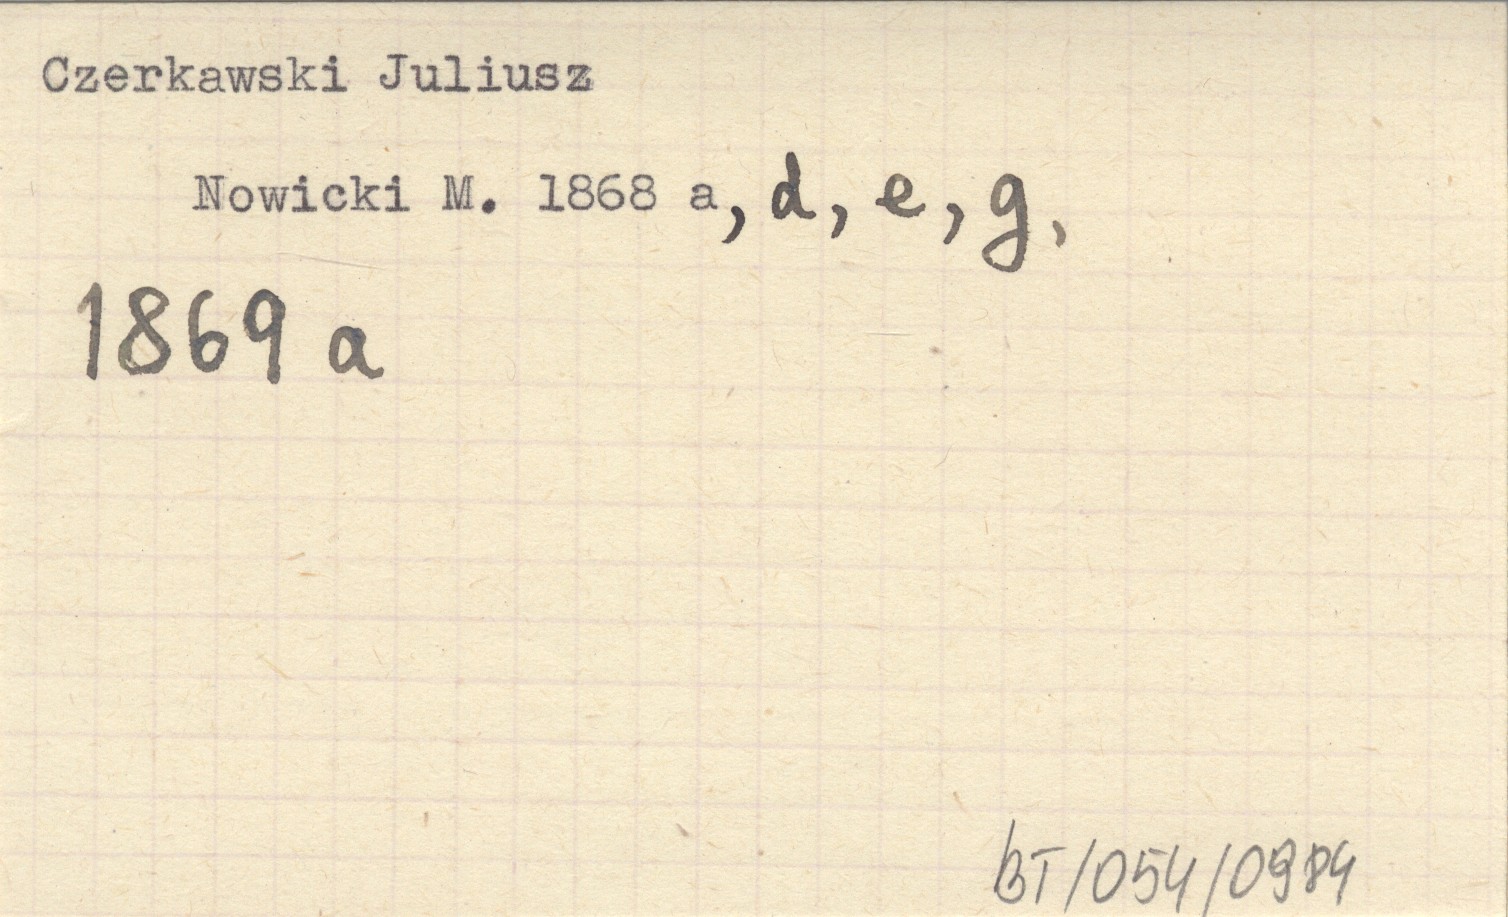 Czerkawski Juliusz
Nowicki M. 1868 a, d, e, g,
1869 a
BT/054/0984